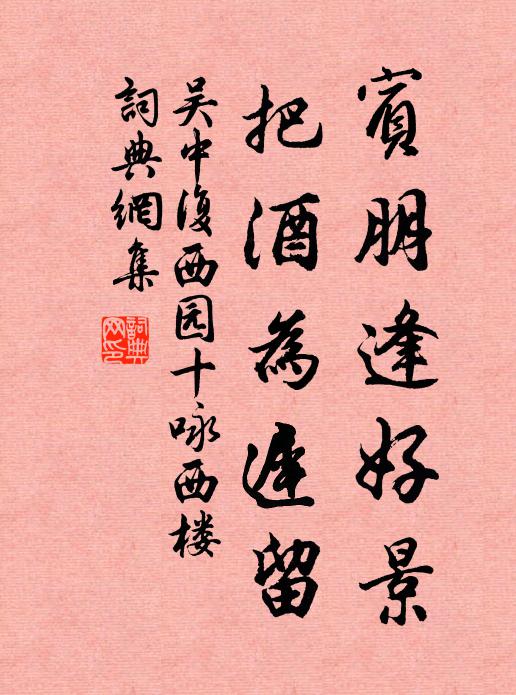 賓朋逢好景
把酒為遲留
吴中復西园十咏西楼
詞典網集
詞典網印